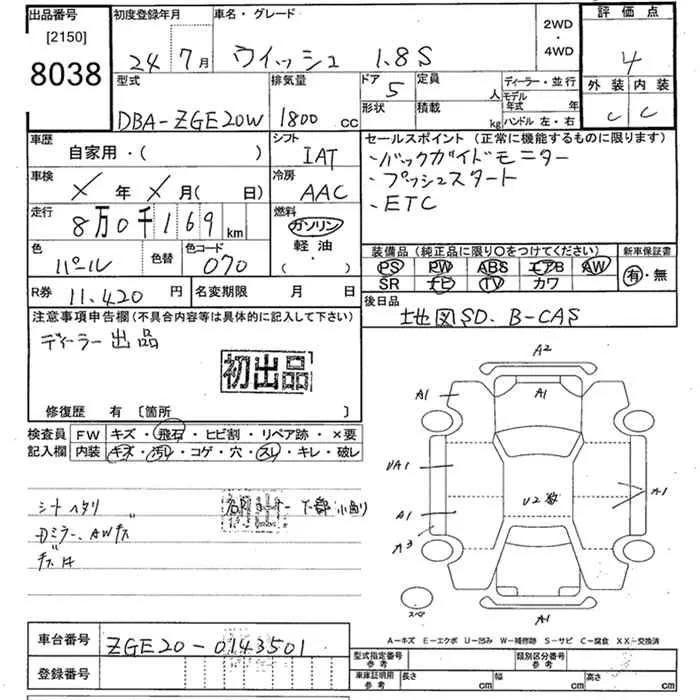 出品番号 初度登録年月 車名・グレード 2WD・4WD 評価点
[2150]
8038 24年7月 ウィッシュ 1.8S 4
型式 排気量 ドア 5 定員 人 ディーラー・並行 外装 内装
DBA-ZGE20W 1800cc 形状 積載 kg モデル年式 年 ハンドル 左・右 C C
車歴 自家用・( ) シフト IAT セールスポイント (正常に機能するものに限ります)
車検 X年X月( 日) 冷房 AAC ・バックガイドモニター
・プッシュスタート
・ETC
走行 8万0千169km 燃料 ガソリン・軽油・( )
色 パール 色替 色コード 070 装備品 (純正品に限り○をつけてください) 新車保証書
PS PW ABS エアB AW 有・無
SR ナビ TV カワ
R券 11,420円 名変期限 月 日 後日品
地図SD、B-CAS
注意事項申告欄 (不具合内容等は具体的に記入して下さい)
ディーラー出品
初出品
修復歴 有 [箇所 ]
検査員記入欄 FW キズ・飛石・ヒビ割・リペア跡・×要
内装 キズ・汚レ・コゲ・穴・スレ・キレ・破レ
シートヘタリ
Dミラー、AWキズ
A2
A1 A1
UA1 U2数 A1
A1
A3
スペア A1
A-キズ E-エクボ U-凹み W-補修跡 S-サビ C-腐食 XX-交換済
車台番号 ZGE20-0143501
登録番号
型式指定番号 参考 類別区分番号 参考
車庫証明用 参考 長さ cm 幅 cm 高さ cm